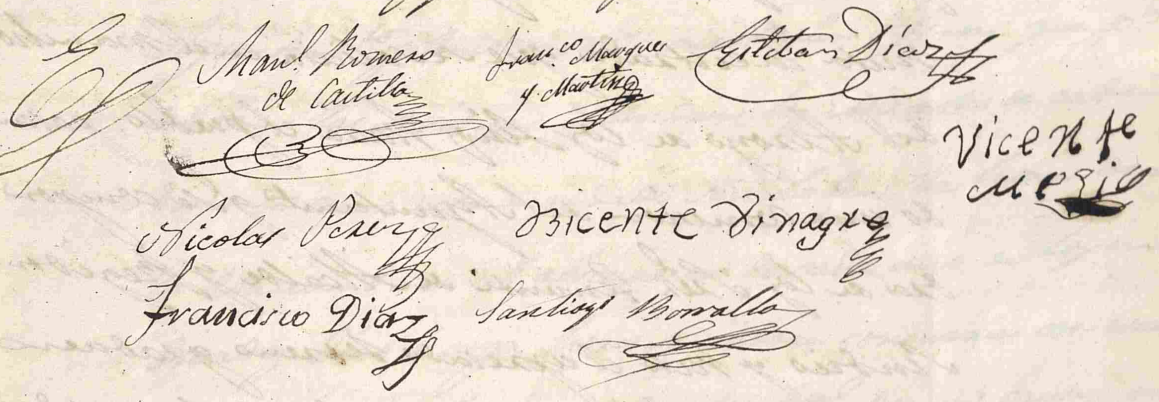 Man.l Romero
de Castilla
Fran.co Marques
y Martinez
Esteban Díaz
Vicente
Mexia
Nicolas Perez
Bicente Vinagre
Francisco Diaz
Santiago Borrallo